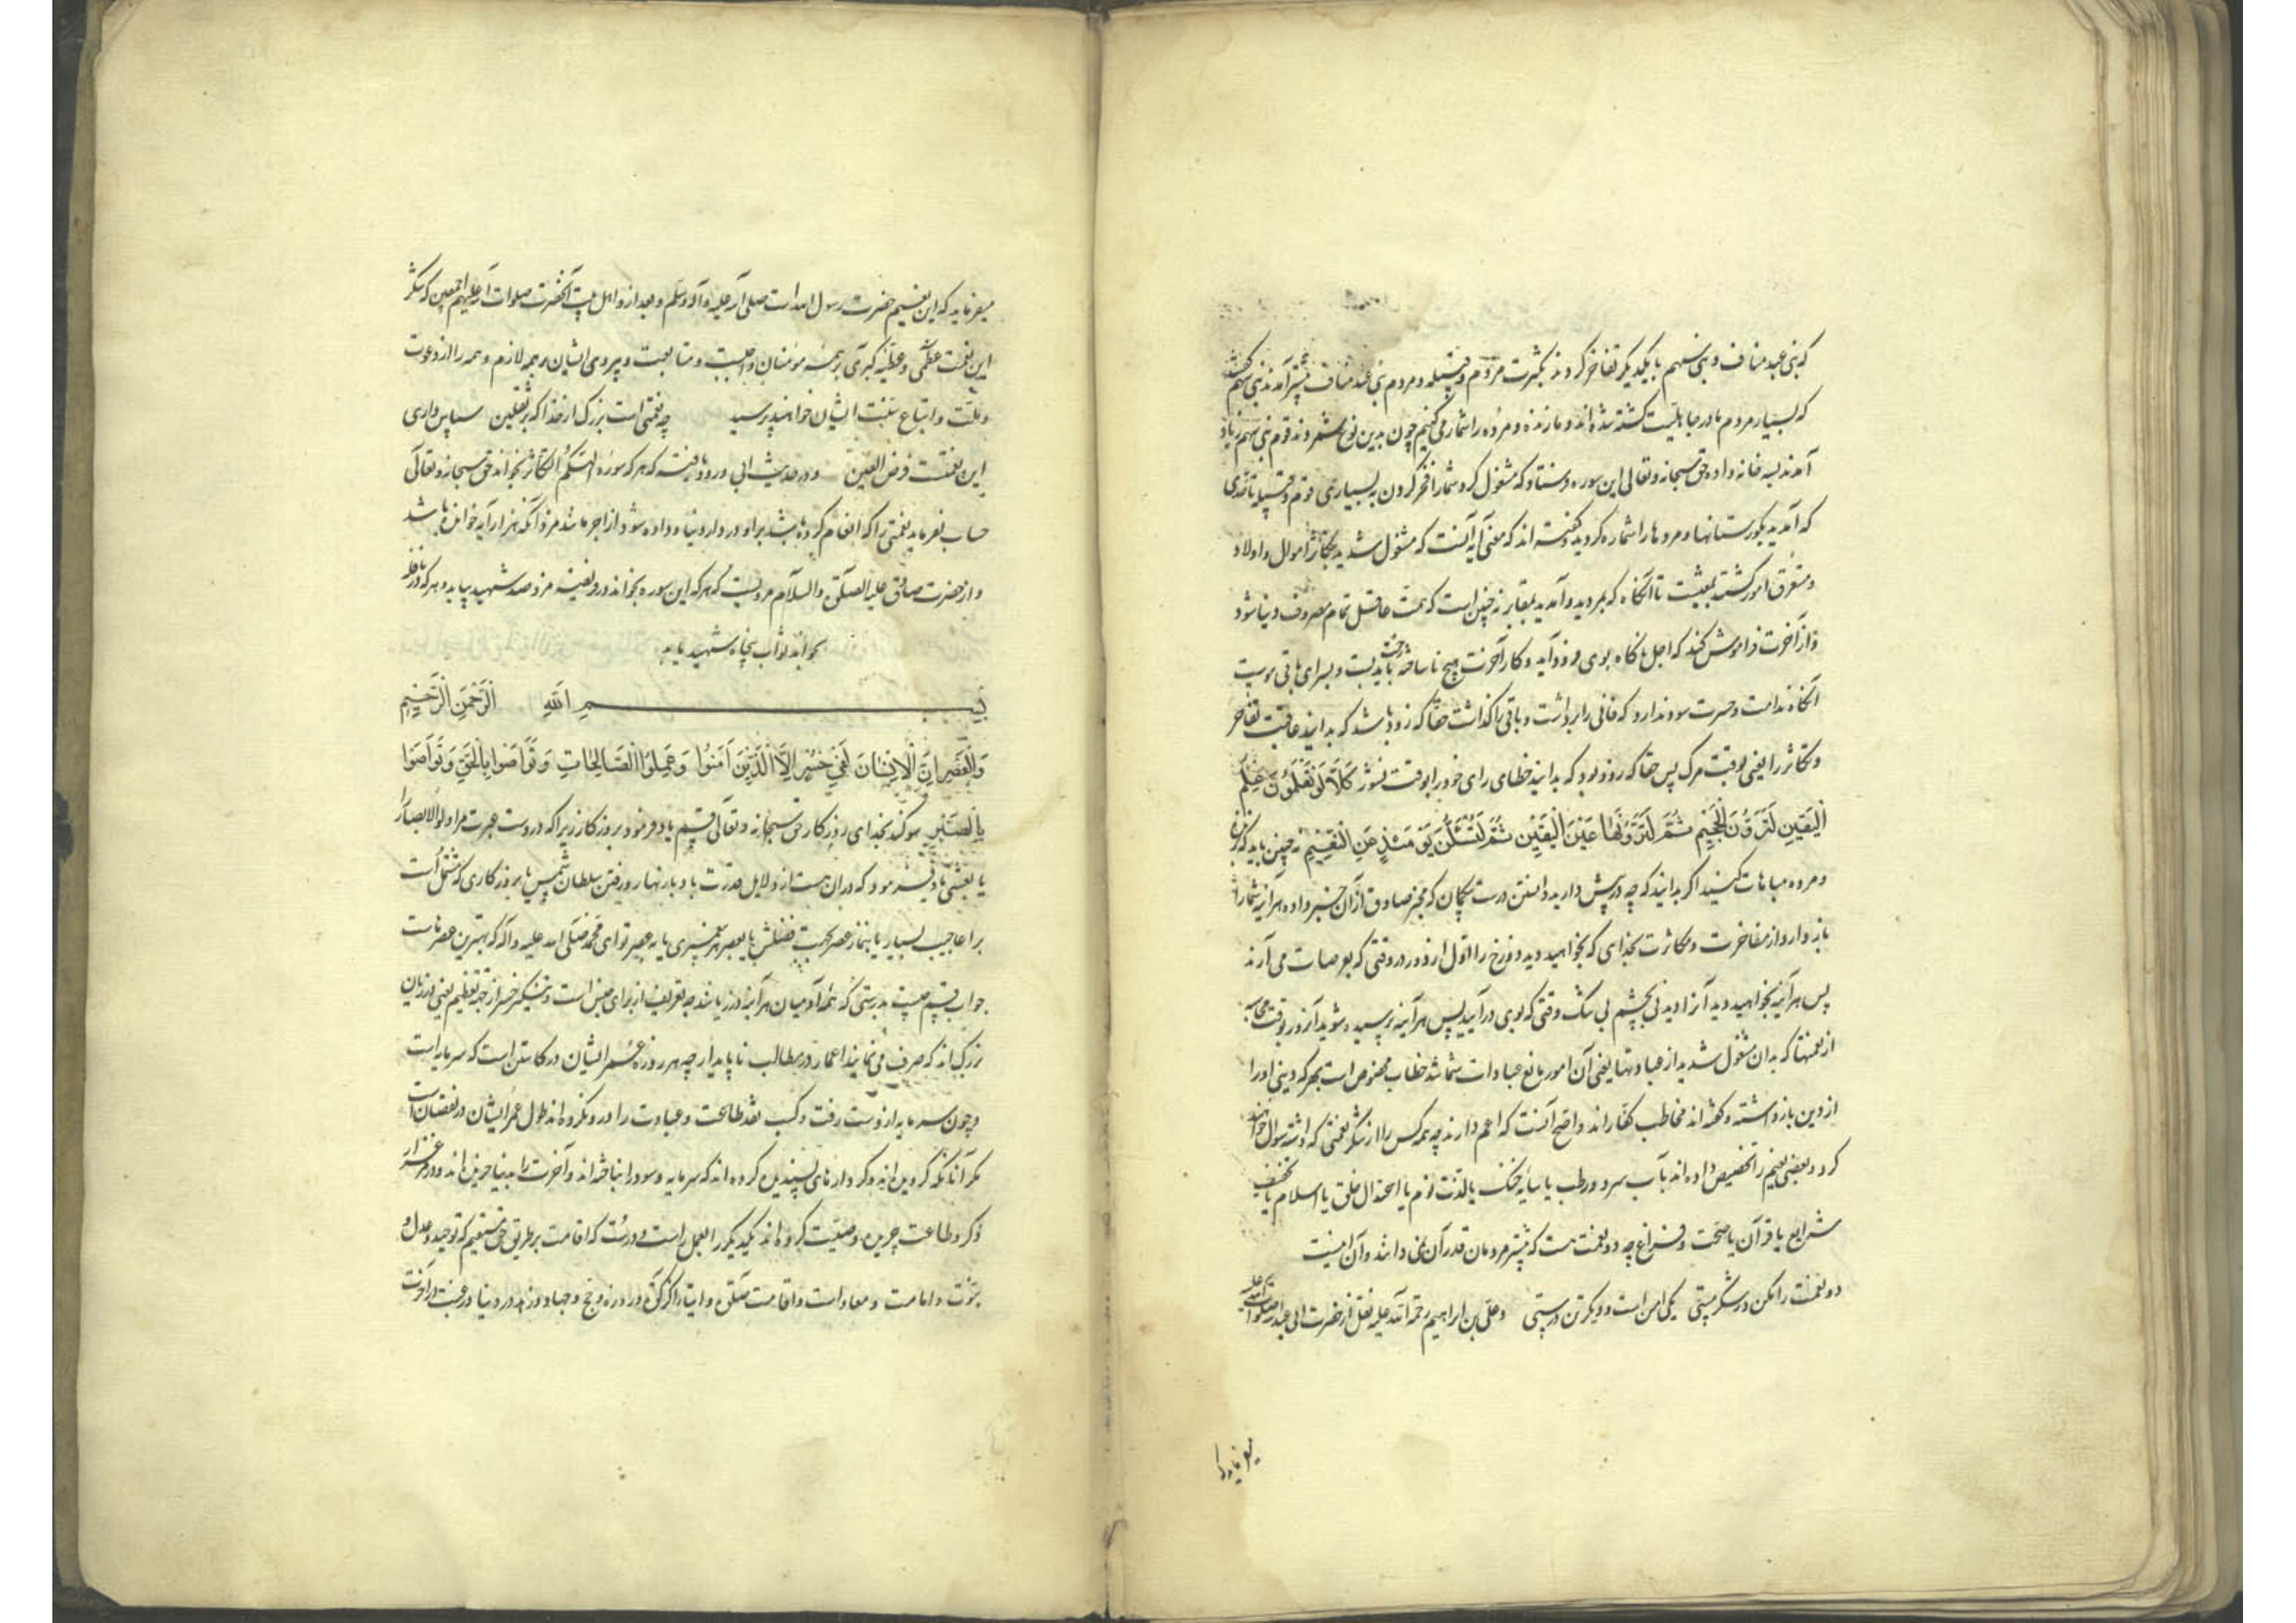 که بنی عبد مناف و بنی سهم با یکدیگر تفاخر کردند بکثرت مردم و قبیله و مردم بنی عبد مناف بیشتر آمدند بنی سهم گفتند
که بسیار مردم ما در جاهلیت کشته شده‌اند و ما زنده و مرده را شمار می کنیم چون بدین نوع شمردند قوم بنی سهم زیاد
آمدند بسه خانه واده حق سبحانه و تعالی این سوره فرستاد که مشغول کرد شما را فخر کردن به بسیاری قوم و قبیله تا حدی
که آمدید بگورستانها و مردها را شماره کردید و گفته اند که معنی آیه آنست که مشغول شدید بتکاثر اموال و اولاد
و متفرق امور گشتید بمعیشت تا آنگاه که بمردید و آمدید بمقابر نه چنین است که همت عاقل تمام مصروف دنیا شود
و از آخرت فراموش کند که اجل ناگاه بوی فرود آید و کار آخرت هیچ ناساخته رخت باید بست و بسرای باقی پیوست
آنگاه ندامت و حسرت سود ندارد که فانی را برداشت و باقی را گذاشت حقا که زود باشد که بدانید عاقبت تفاخر
و تکاثر را یعنی بوقت مرگ پس حقا که زود بود که بدانید خطای رای خود را بوقت نشور کَلَّا لَوْ تَعْلَمُونَ عِلْمَ
الْیَقِینِ لَتَرَوُنَّ الْجَحِیمَ ثُمَّ لَتَرَوُنَّهَا عَیْنَ الْیَقِینِ ثُمَّ لَتُسْئَلُنَّ یَوْمَئِذٍ عَنِ النَّعِیمِ نه چنین باید که بزنده
و مرده مباهات کنید اگر بدانید که چه در پیش دارید دانستن درست بیگمان که مخبر صادق از آن خبر داده هر آینه شما را
باز دارد از مفاخرت و مکاثرت بخدای که بخواهید دید دوزخ را اول از دور در وقتی که بعرصات می آرند
پس هر آینه بخواهید دید آنرا دیدنی بچشم بی شک وقتی که بوی در آیید پس هر آینه پرسیده شوید آنروز بوقت محاسبه
از نعمتها که بدان مشغول شدید از عبادتها یعنی آن امور مانع عبادات شما شد خطاب مخصوص است بهر که دینی او را
از دین بازداشته و گفته اند مخاطب کفارند و اصح آنست که اعم دارند چه همه کس را از شکر نعمتی که داشته سوال خواهند
کرد و بعضی نعیم را تخصیص داده اند بآب سرد و رطب یا سایه خنک یا لذت نوم یا اعتدال خلق یا اسلام یا تخفیف
شرایع یا قرآن یا صحت و فراغ چه دو نعمت هست که بیشتر مردمان قدر آن نمی دانند و آن اینست
دو نعمت را بکن در شکر سستی یکی امن است و دیگر تن درستی و علی بن ابراهیم رحمة الله علیه نقل از حضرت ابی عبدالله صلوات الله علیه
میفرماید که
میفرماید که این نعیم حضرت رسول الله است صلی الله علیه و آله وسلم و بعد از و اهل بیت آنحضرت صلوات الله علیهم اجمعین که شکر
این نعمت عظمی و عطیه کبری بر همه مؤمنان واجبست و متابعت و پیروی ایشان بر همه لازم و همه را از دعوت
و ملت و اتباع سنت ایشان خواهند پرسید چه نعمتی است بزرگ از خدا که بر ثقلین سپاس داری
این نعمتست فرض العین و در حدیث ابی ورود یافته که هر که سوره الهیکم التکاثر بخواند حق سبحانه و تعالی
حساب نفرماید نعمتی را که انعام کرده باشد بر او در دار دنیا و داده شود از اجر مانند مزد آنکه هزار آیه خوانده باشد
و از حضرت صادق علیه الصلوة والسلام مرویست که هر که این سوره بخواند در فریضه مزد صد شهید بیابد و هر که در نافله
بخواند ثواب پنجاه شهید یابد
بِسْمِ اللهِ الرَّحْمٰنِ الرَّحِیمِ
وَالْعَصْرِ اِنَّ الْاِنْسَانَ لَفِی خُسْرٍ اِلَّا الَّذِینَ آمَنُوا وَعَمِلُوا الصَّالِحَاتِ وَتَوَاصَوْا بِالْحَقِّ وَتَوَاصَوْا
بِالصَّبْرِ سوگند بخدای روزگار حق سبحانه و تعالی قسم یاد فرمود بروزگار زیرا که دروست عبرت مر اولوالابصار را
یا بعشی یاد فرمود که در آن هست از دلایل قدرت با دبار نهار و رفتن سلطان شمس یا بروزگاری که مشتمل است
بر اعاجیب بسیار یا بنماز عصر بجهت فضلش یا بعصر هر پیغمبری یا به عصر تو ای محمد صلی الله علیه و آله که بهترین عصرهاست
جواب قسم چیست بدرستی که همه آدمیان هر آینه در زیانند چه تعریف از برای جنس است و تنکیر خسر از جهة تعظیم یعنی در زیان
بزرگ اند که صرف می نمایند اعمار در مطالب ناپایدار چه هر روزه عمر ایشان در کاستن است که سرمایه است
و چون سرمایه از دست رفت و کسب نقد طاعت و عبادت را در و نکرده اند طول عمر ایشان در نقصان است
مگر آنانکه گرویده اند و کردارهای پسندیده کرده اند که سرمایه و سود را نباخته اند و آخرت را بدنیا خریده اند و
ذکر و طاعت چریده و وصیت کرده اند یکدیگر را بعمل راست و درست که اقامت بر طریق حق مستقیم که توحید و عدل و
نبوت و امامت و معاد است و اقامت صلوة و ایتاء زکوة و روزه و حج و جهاد و زهد در دنیا و رغبت در آخرت